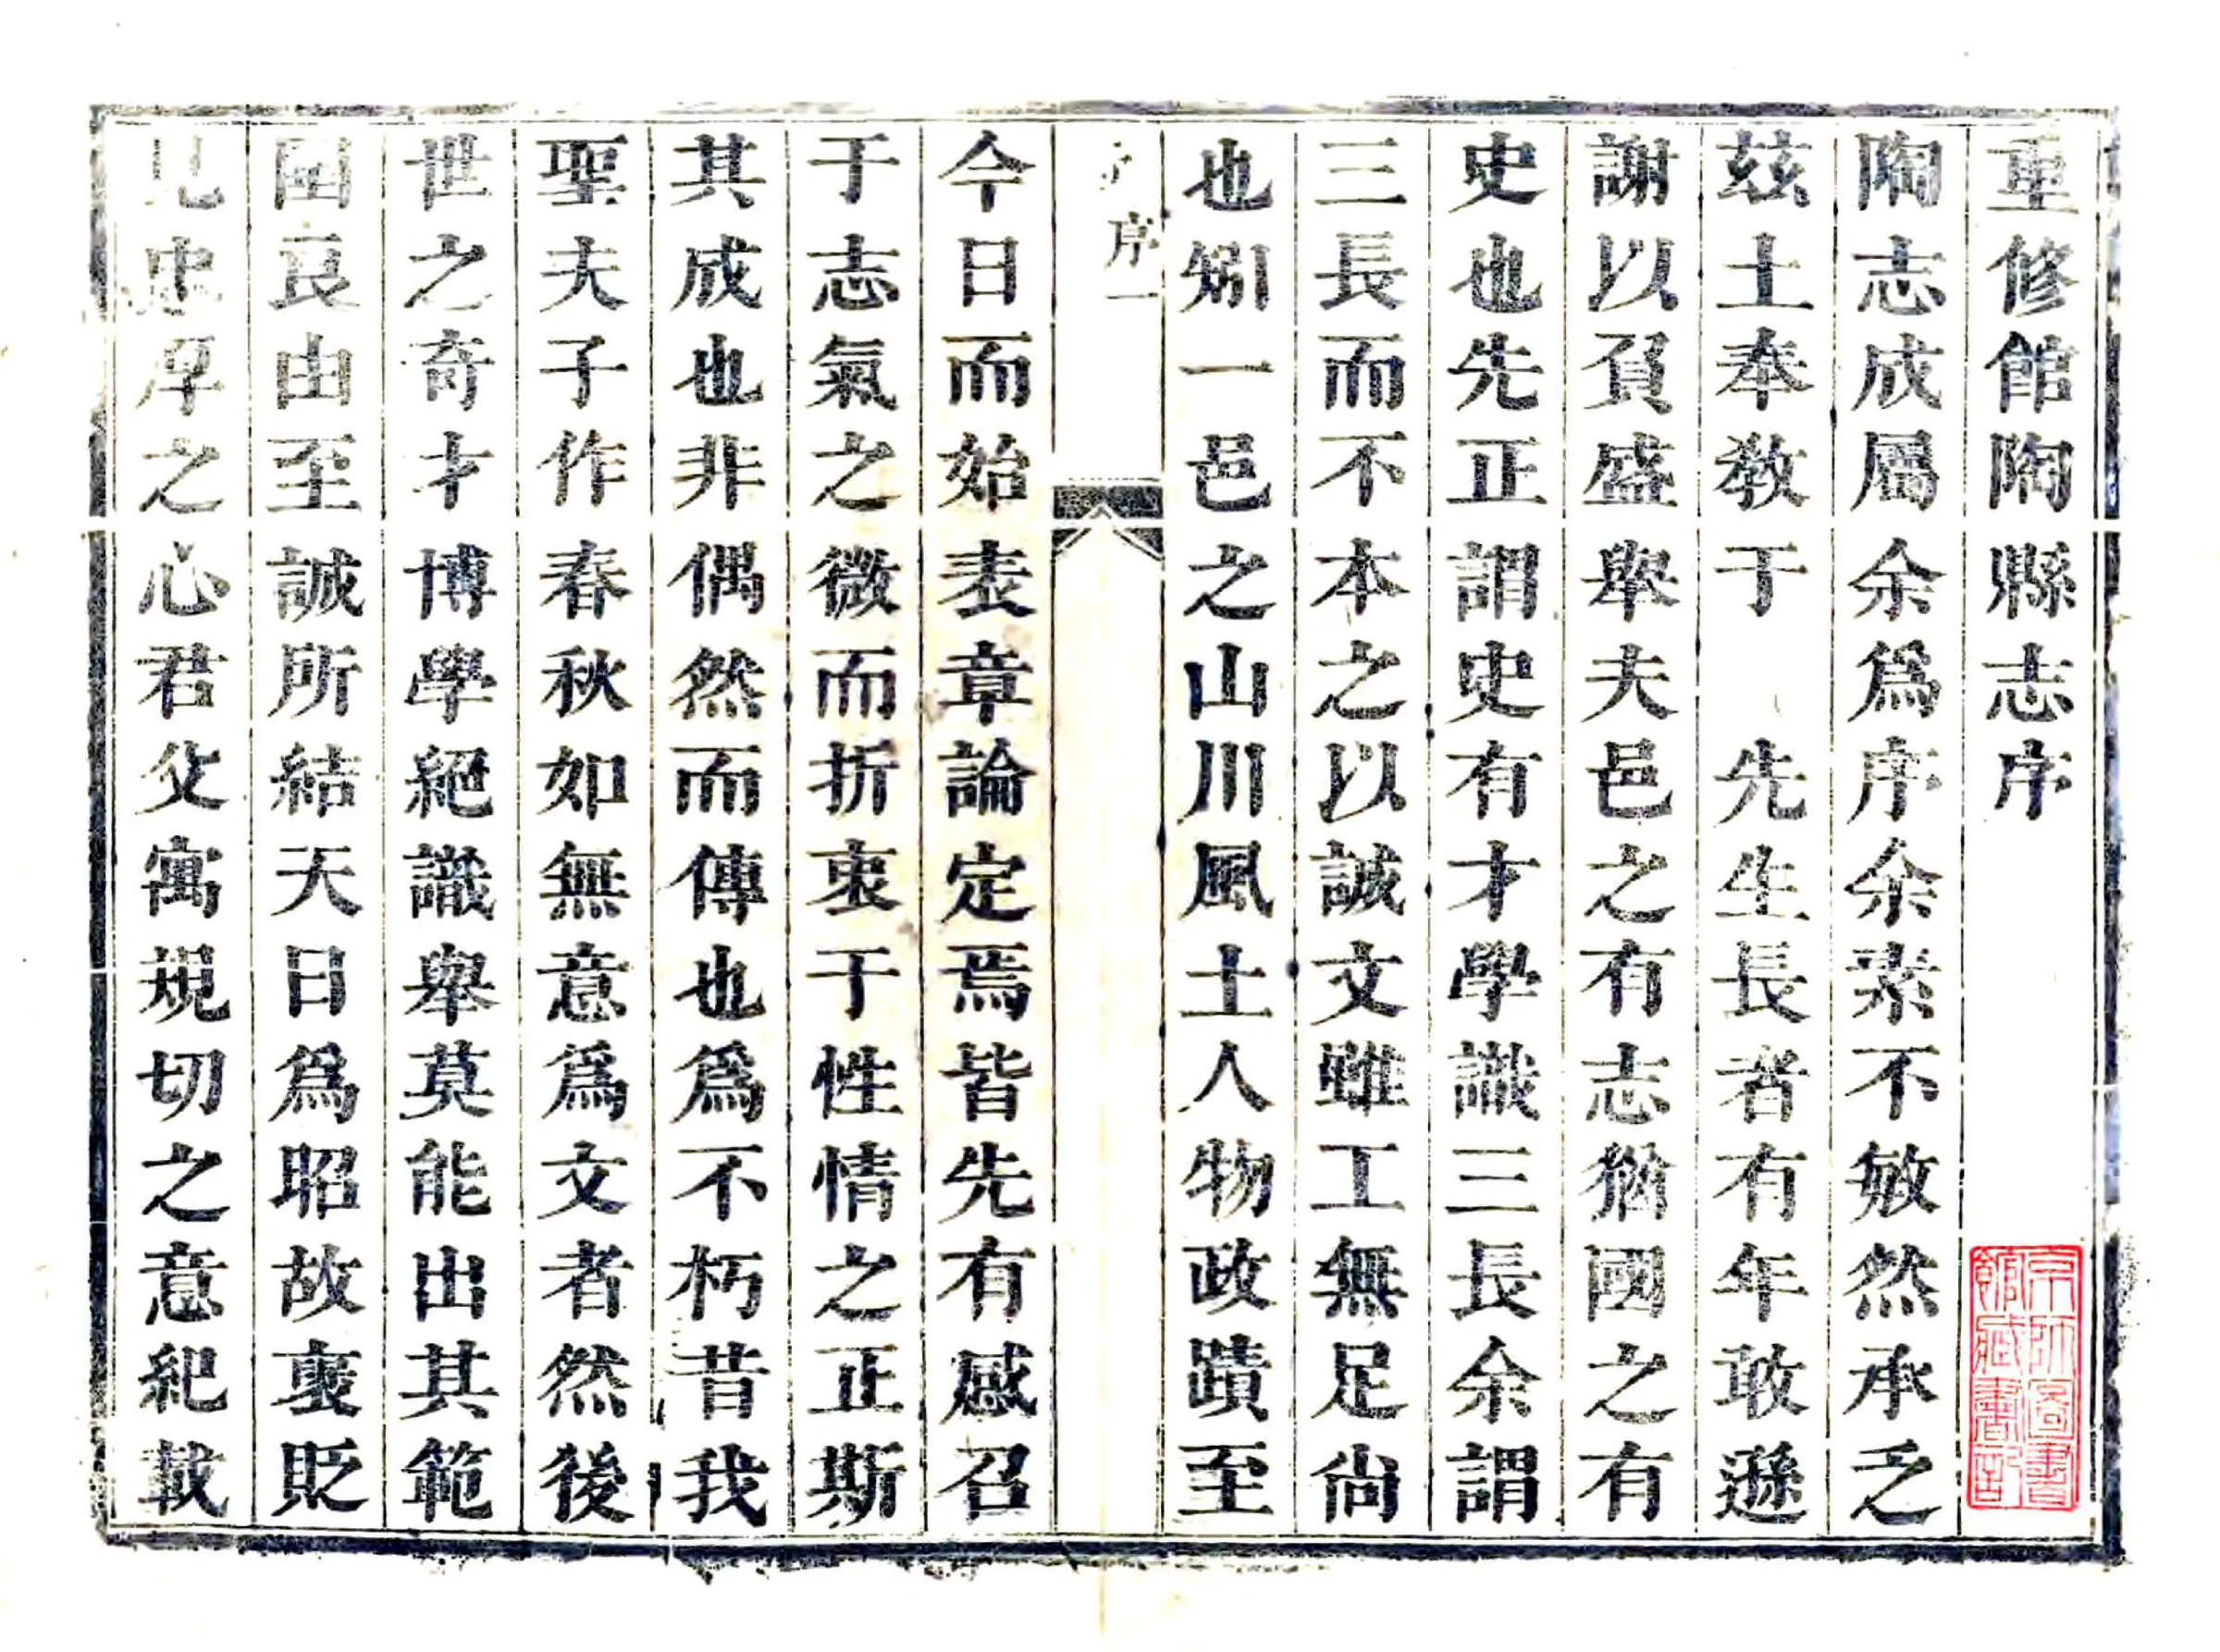 重修館陶縣志序
陶志成屬余爲序余素不敏然承乏
玆土奉教于 先生長者有年敢遜
謝以負盛舉夫邑之有志猶國之有
史也先正謂史有才學識三長余謂
三長而不本之以誠文雖工無足尙
也矧一邑之山川風土人物政蹟至
序一
今日而始表章論定焉皆先有感召
于志氣之微而折衷于性情之正斯
其成也非偶然而傳也爲不朽昔我
聖夫子作春秋如無意爲文者然後
世之奇才博學絕識舉莫能出其範
圍良由至誠所結天日爲昭故褒貶
見忠厚之心君父寓規切之意紀載
京師圖書
館藏書記